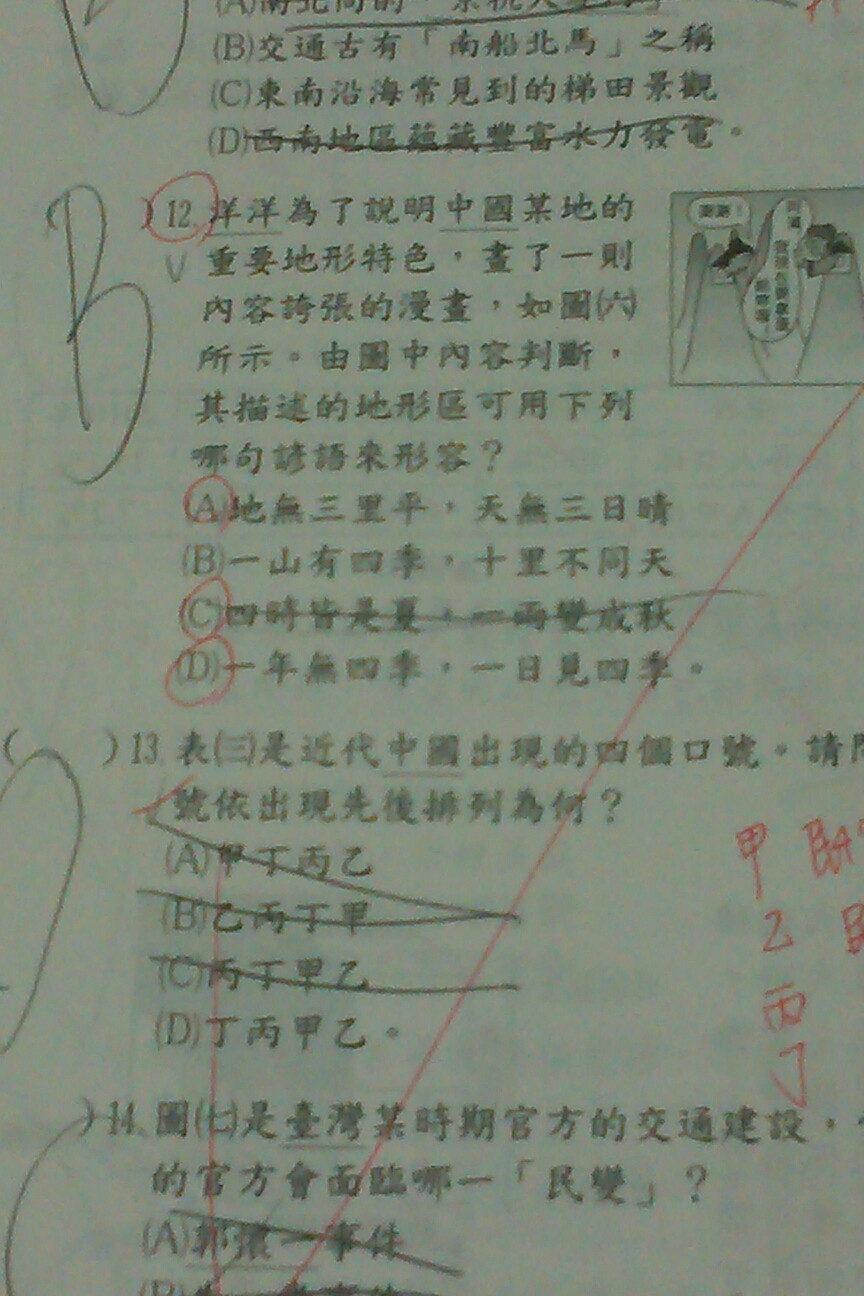 (B)交通古有「南船北馬」之稱
(C)東南沿海常見到的梯田景觀
(D)西南地區蘊藏豐富水力發電。
B
( )12.洋洋為了說明中國某地的
重要地形特色,畫了一則
內容誇張的漫畫,如圖㈥
所示。由圖中內容判斷,
其描述的地形區可用下列
哪句諺語來形容?
(A)地無三里平,天無三日晴
(B)一山有四季,十里不同天
(C)四時皆是夏,一雨變成秋
(D)一年無四季,一日見四季。
( )13.表㈢是近代中國出現的四個口號。請
號依出現先後排列為何?
(A)甲丁丙乙
(B)乙丙丁甲
(C)丙丁甲乙
(D)丁丙甲乙。
甲
乙
丙
丁
)14.圖㈦是臺灣某時期官方的交通建設,
的官方會面臨哪一「民變」?
(A)郭懷一事件